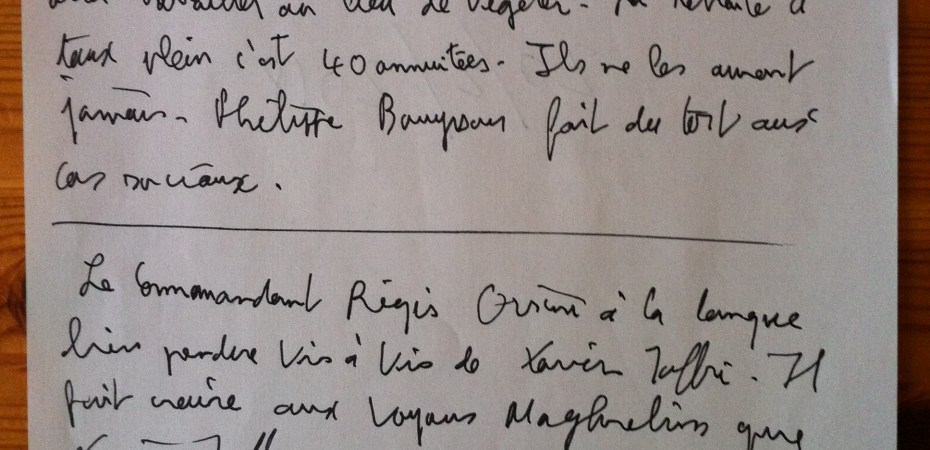 travailler au lieu de végéter. La retraite à
taux plein c'est 40 annuitées. Ils ne les auront
jamais. Philippe fait du tort aux
cas sociaux.
Le Commandant Régis Orsini à la langue
bien pendue Vis à Vis de Xavier Jaffré. Il
fait croire aux voyous Maghrebins que